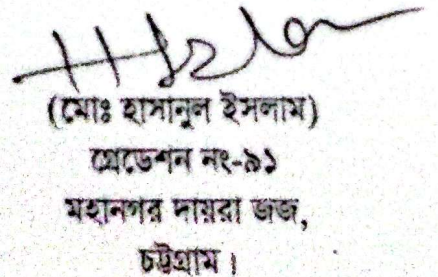 (মোঃ হাসানুল ইসলাম)
গ্রেডেশন নং-৯১
মহানগর দায়রা জজ,
চট্টগ্রাম।